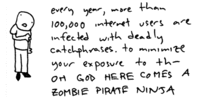 every year, more than
100,000 internet users are
infected with deadly
catchphrases. to minimize
your exposure to th—
OH GOD HERE COMES A
ZOMBIE PIRATE NINJA